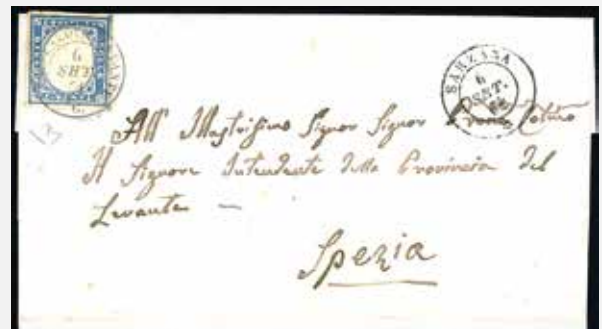 SARZANA
6
SET.
6
SET
13
All' Illustrissimo Signor Signor
Il Signore Intendente della Provincia del
Levante —
Spezia